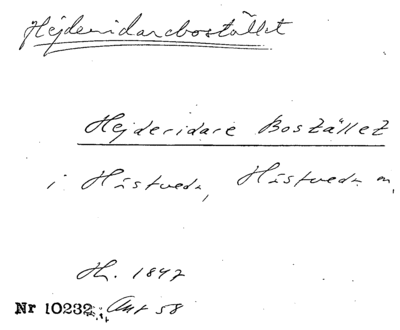 Hejderidarebostället
Hejderidare Bostället
i Hästveda, Hästveda sn,
H. 1847
Nr 10232. Ant 58